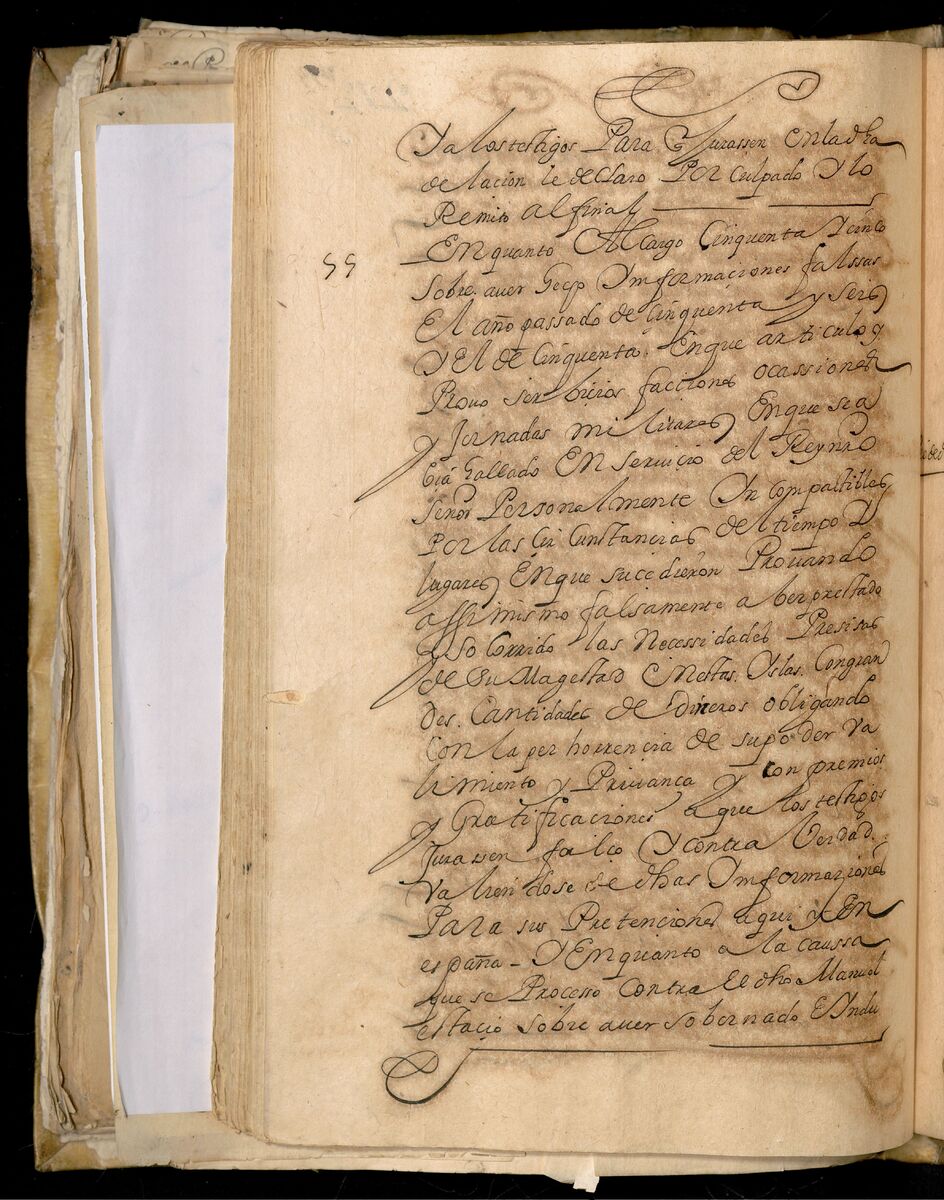 Y a los testigos Para q Jurassen en la dha
de lacion le declaro Por culpado Y lo
Remito al final
55
En quanto Al cargo cinquenta Y cinco
sobre auer hecho Informaciones falssas
El año passado de cinquenta y seis
Y El de cinquenta. En que articulo y
Prouo ser bicios facciones ocassiones
y Jornadas militares En que se a
bia hallado En servicio del Rey nro
señor Personalmente Incompatibles
Por las circunstancias del tiempo Y
lugares En que sucedieron Prouando
assimismo falsamente a ber prestado
y socorrido las Necessidades Presisas
de su Magestad En estas Yslas. Con gran
des. Cantidades de dineros obligando
Con la per horrencia de su poder va
limiento y Priuanca y con premios
y Gratificaciones a que los testigos
Jurassen falso Y contra Verdad.
Valiendose de dhas Informaziones
Para sus Pretenciones aqui y En
españa - Y En quanto a la caussa
que se Processo contra El dho Manuel
estacio sobre auer sobernado E Indu